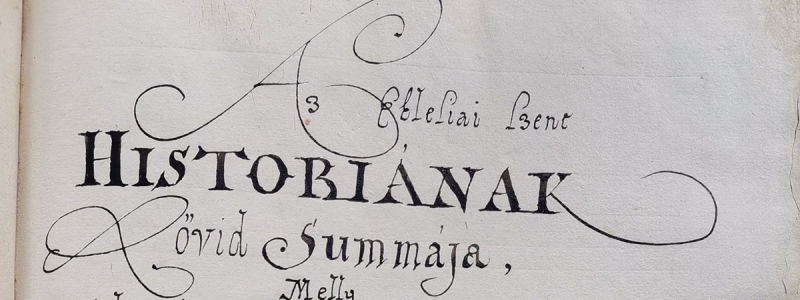 Az Ekleſiai ſzent
HISTORIÁNAK
Rövid Summája,
Melly